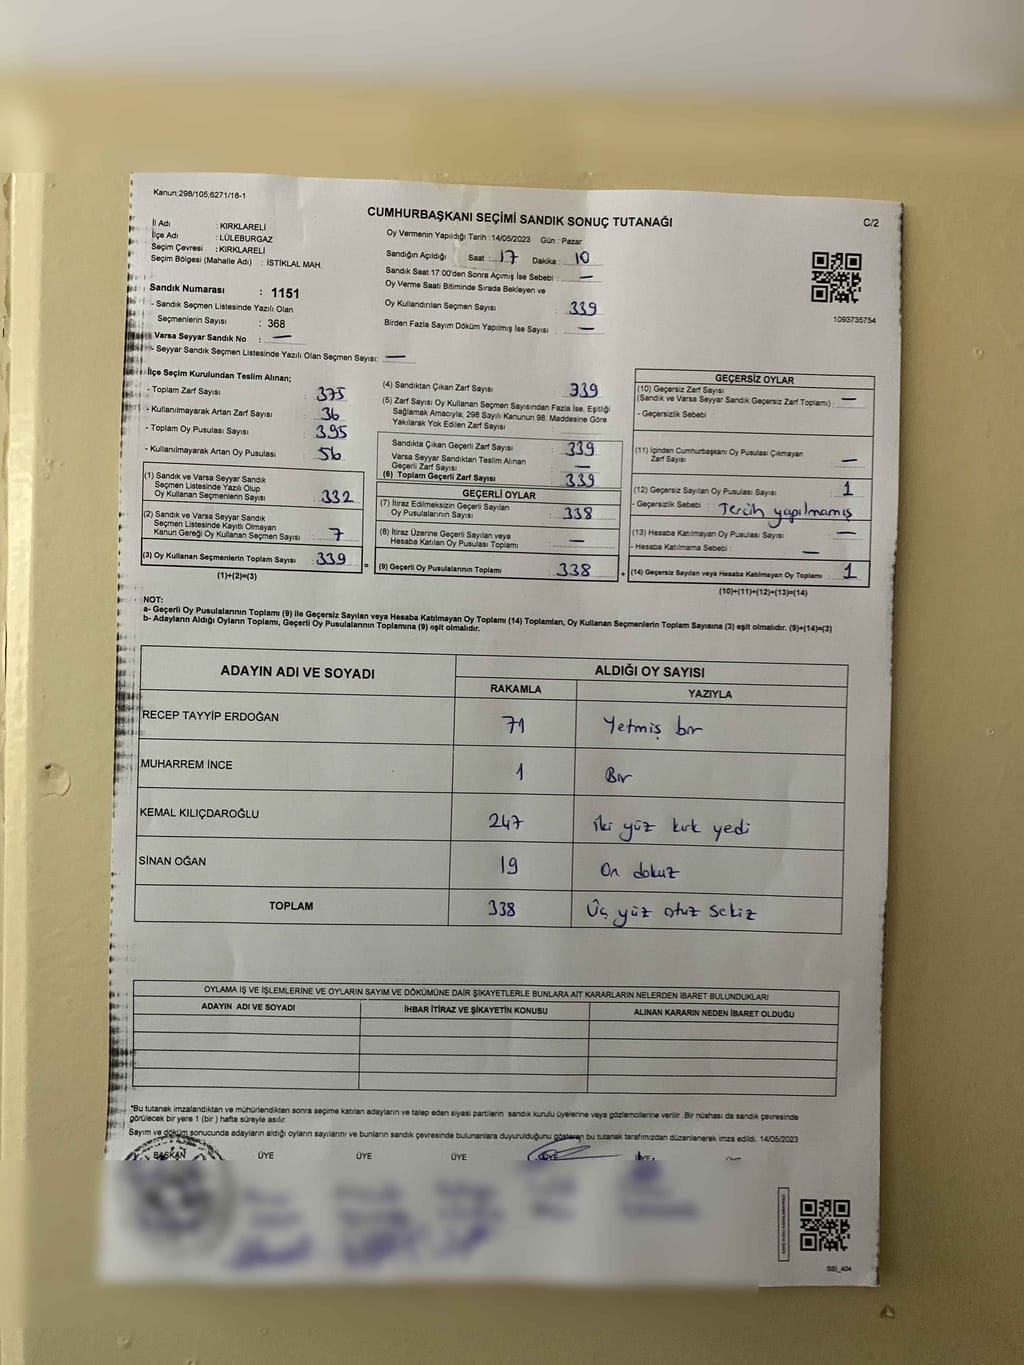 Kanun;298/105,6271/18-1
CUMHURBAŞKANI SEÇİMİ SANDIK SONUÇ TUTANAĞI
C/2
İl Adı : KIRKLARELİ
İlçe Adı : LÜLEBURGAZ
Seçim Çevresi : KIRKLARELİ
Seçim Bölgesi (Mahalle Adı) : İSTİKLAL MAH.
Sandık Numarası : 1151
- Sandık Seçmen Listesinde Yazılı Olan
Seçmenlerin Sayısı : 368
Varsa Seyyar Sandık No : —
- Seyyar Sandık Seçmen Listesinde Yazılı Olan Seçmen Sayısı: —
Oy Vermenin Yapıldığı Tarih :14/05/2023 Gün : Pazar
Sandığın Açıldığı Saat : 17 Dakika : 10
Sandık Saat 17:00'den Sonra Açımış İse Sebebi : —
Oy Verme Saati Bitiminde Sırada Bekleyen ve
Oy Kullandırılan Seçmen Sayısı : 339
Birden Fazla Sayım Döküm Yapılmış İse Sayısı : —
1093735754
İlçe Seçim Kurulundan Teslim Alınan;
- Toplam Zarf Sayısı : 375
- Kullanılmayarak Artan Zarf Sayısı : 36
- Toplam Oy Pusulası Sayısı : 395
- Kullanılmayarak Artan Oy Pusulası : 56
(1) Sandık ve Varsa Seyyar Sandık
Seçmen Listesinde Yazılı Olup
Oy Kullanan Seçmenlerin Sayısı : 332
(2) Sandık ve Varsa Seyyar Sandık
Seçmen Listesinde Kayıtlı Olmayan
Kanun Gereği Oy Kullanan Seçmen Sayısı : 7
(3) Oy Kullanan Seçmenlerin Toplam Sayısı : 339
(1)+(2)=(3)
=
(4) Sandıktan Çıkan Zarf Sayısı : 339
(5) Zarf Sayısı Oy Kullanan Seçmen Sayısından Fazla İse, Eşitliği
Sağlamak Amacıyla; 298 Sayılı Kanunun 98. Maddesine Göre
Yakılarak Yok Edilen Zarf Sayısı :
Sandıkta Çıkan Geçerli Zarf Sayısı : 339
Varsa Seyyar Sandıktan Teslim Alınan
Geçerli Zarf Sayısı : —
(6) Toplam Geçerli Zarf Sayısı : 339
GEÇERLİ OYLAR
(7) İtiraz Edilmeksizin Geçerli Sayılan
Oy Pusulalarının Sayısı : 338
(8) İtiraz Üzerine Geçerli Sayılan veya
Hesaba Katılan Oy Pusulası Toplamı : —
(9) Geçerli Oy Pusulalarının Toplamı : 338
+
GEÇERSİZ OYLAR
(10) Geçersiz Zarf Sayısı
(Sandık ve Varsa Seyyar Sandık Geçersiz Zarf Toplamı) : —
- Geçersizlik Sebebi :
(11) İçinden Cumhurbaşkanı Oy Pusulası Çıkmayan
Zarf Sayısı : —
(12) Geçersiz Sayılan Oy Pusulası Sayısı : 1
- Geçersizlik Sebebi : Tercih yapılmamış
(13) Hesaba Katılmayan Oy Pusulası Sayısı : —
- Hesaba Katılmama Sebebi : —
(14) Geçersiz Sayılan veya Hesaba Katılmayan Oy Toplamı : 1
(10)+(11)+(12)+(13)=(14)
NOT:
a- Geçerli Oy Pusulalarının Toplamı (9) ile Geçersiz Sayılan veya Hesaba Katılmayan Oy Toplamı (14) Toplamları, Oy Kullanan Seçmenlerin Toplam Sayısına (3) eşit olmalıdır. (9)+(14)=(3)
b- Adayların Aldığı Oyların Toplamı, Geçerli Oy Pusulalarının Toplamına (9) eşit olmalıdır.
ADAYIN ADI VE SOYADI
ALDIĞI OY SAYISI
RAKAMLA YAZIYLA
RECEP TAYYİP ERDOĞAN 71 Yetmiş bir
MUHARREM İNCE 1 Bir
KEMAL KILIÇDAROĞLU 247 iki yüz kırk yedi
SİNAN OĞAN 19 On dokuz
TOPLAM 338 Üç yüz otuz sekiz
OYLAMA İŞ VE İŞLEMLERİNE VE OYLARIN SAYIM VE DÖKÜMÜNE DAİR ŞİKAYETLERLE BUNLARA AİT KARARLARIN NELERDEN İBARET BULUNDUKLARI
ADAYIN ADI VE SOYADI İHBAR İTİRAZ VE ŞİKAYETİN KONUSU ALINAN KARARIN NEDEN İBARET OLDUĞU
*Bu tutanak imzalandıktan ve mühürlendikten sonra seçime katılan adayların ve talep eden siyasi partilerin sandık kurulu üyelerine veya gözlemcilerine verilir. Bir nüshası da sandık çevresinde
görülecek bir yere 1 (bir ) hafta süreyle asılır.
Sayım ve döküm sonucunda adayların aldığı oyların sayılarını ve bunların sandık çevresinde bulunanlara duyurulduğunu gösteren bu tutanak tarafımızdan düzenlenerek imza edildi. 14/05/2023
BAŞKAN ÜYE ÜYE ÜYE ÜYE ÜYE
SSİ_404